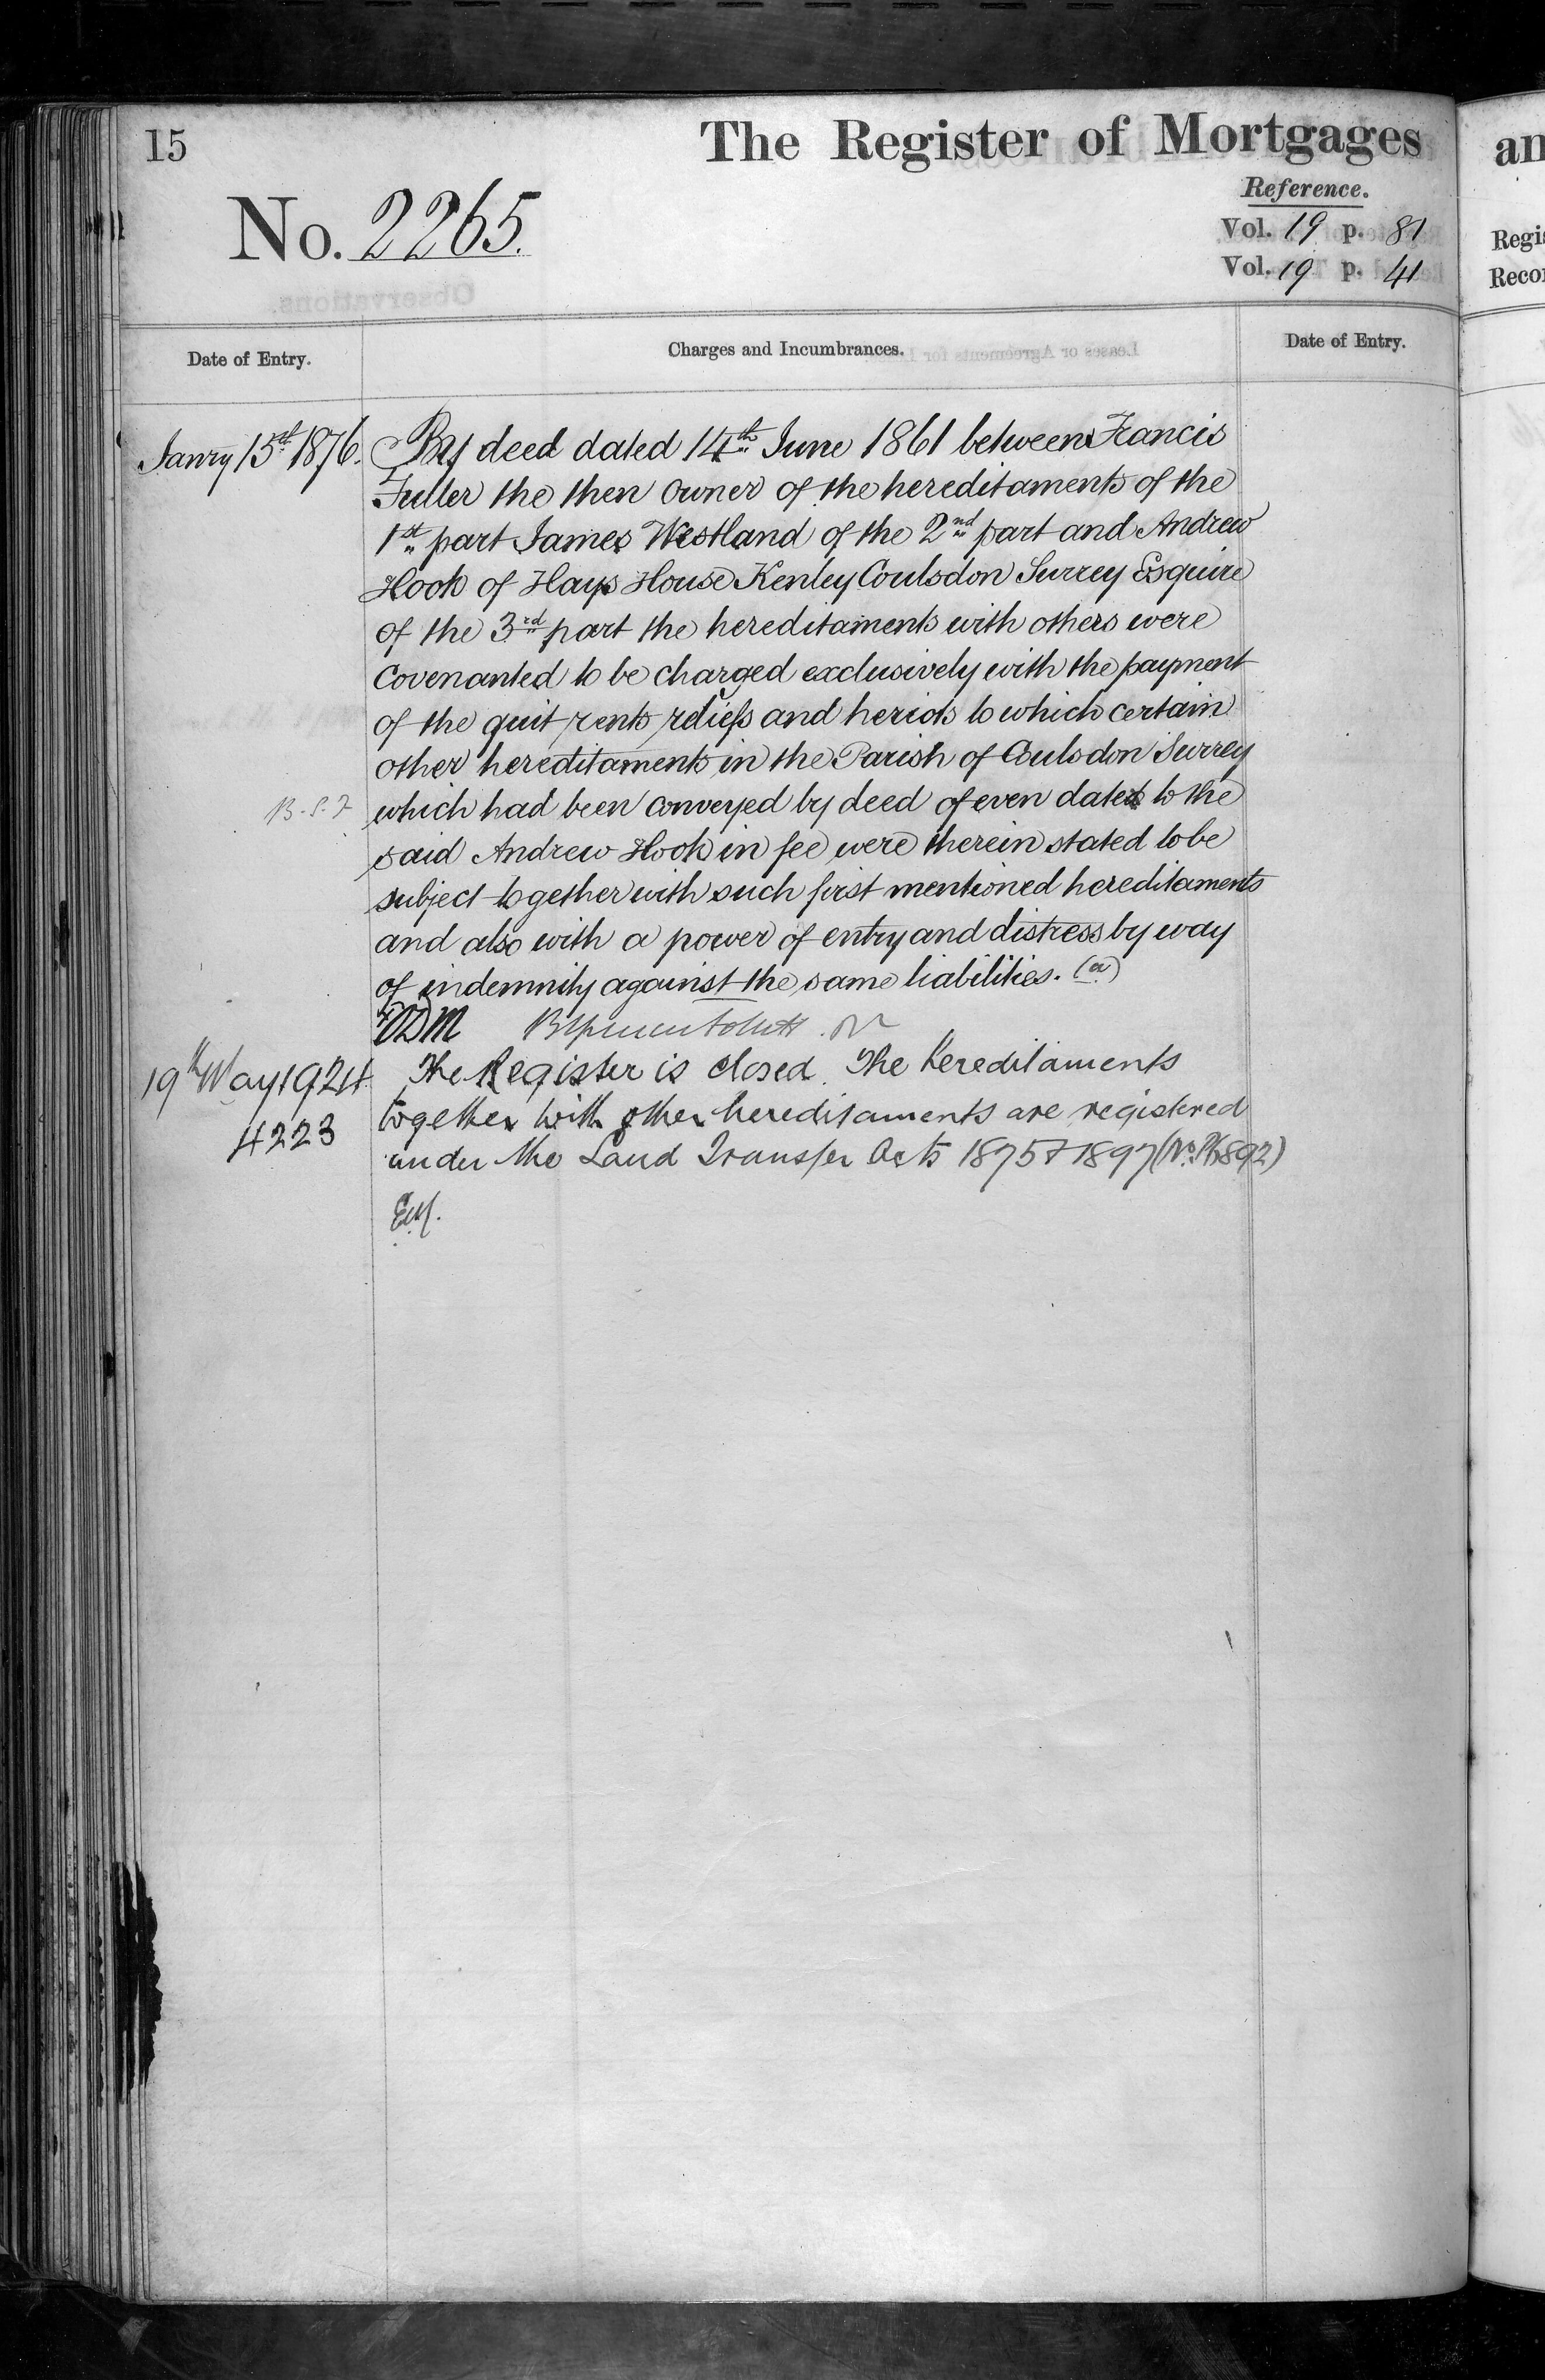 15
The Register of Mortgages
an
Reference.
No. 2265.
Vol. 19 p. 81
Vol. 19 p. 41
Regis
Recor
Date of Entry.
Charges and Incumbrances.
Date of Entry.
Janry 15th 1876.
By deed dated 14th June 1861 between Francis
Fuller the then owner of the hereditaments of the
1st part James Westland of the 2nd part and Andrew
Hook of Hays House Kenley Coulsdon Surrey Esquire
of the 3rd part the hereditaments with others were
Covenanted to be charged exclusively with the payment
of the quit rents reliefs and heriots to which certain
other hereditaments in the Parish of Coulsdon Surrey
which had been conveyed by deed of even date to the
said Andrew Hook in fee were therein stated to be
subject together with such first mentioned hereditaments
and also with a power of entry and distress by way
of indemnity against the same liabilities. (a)
19th May 1924
4223
The Register is closed. The hereditaments
together with other hereditaments are registered
under the Land Transfer Acts 1875 & 1897